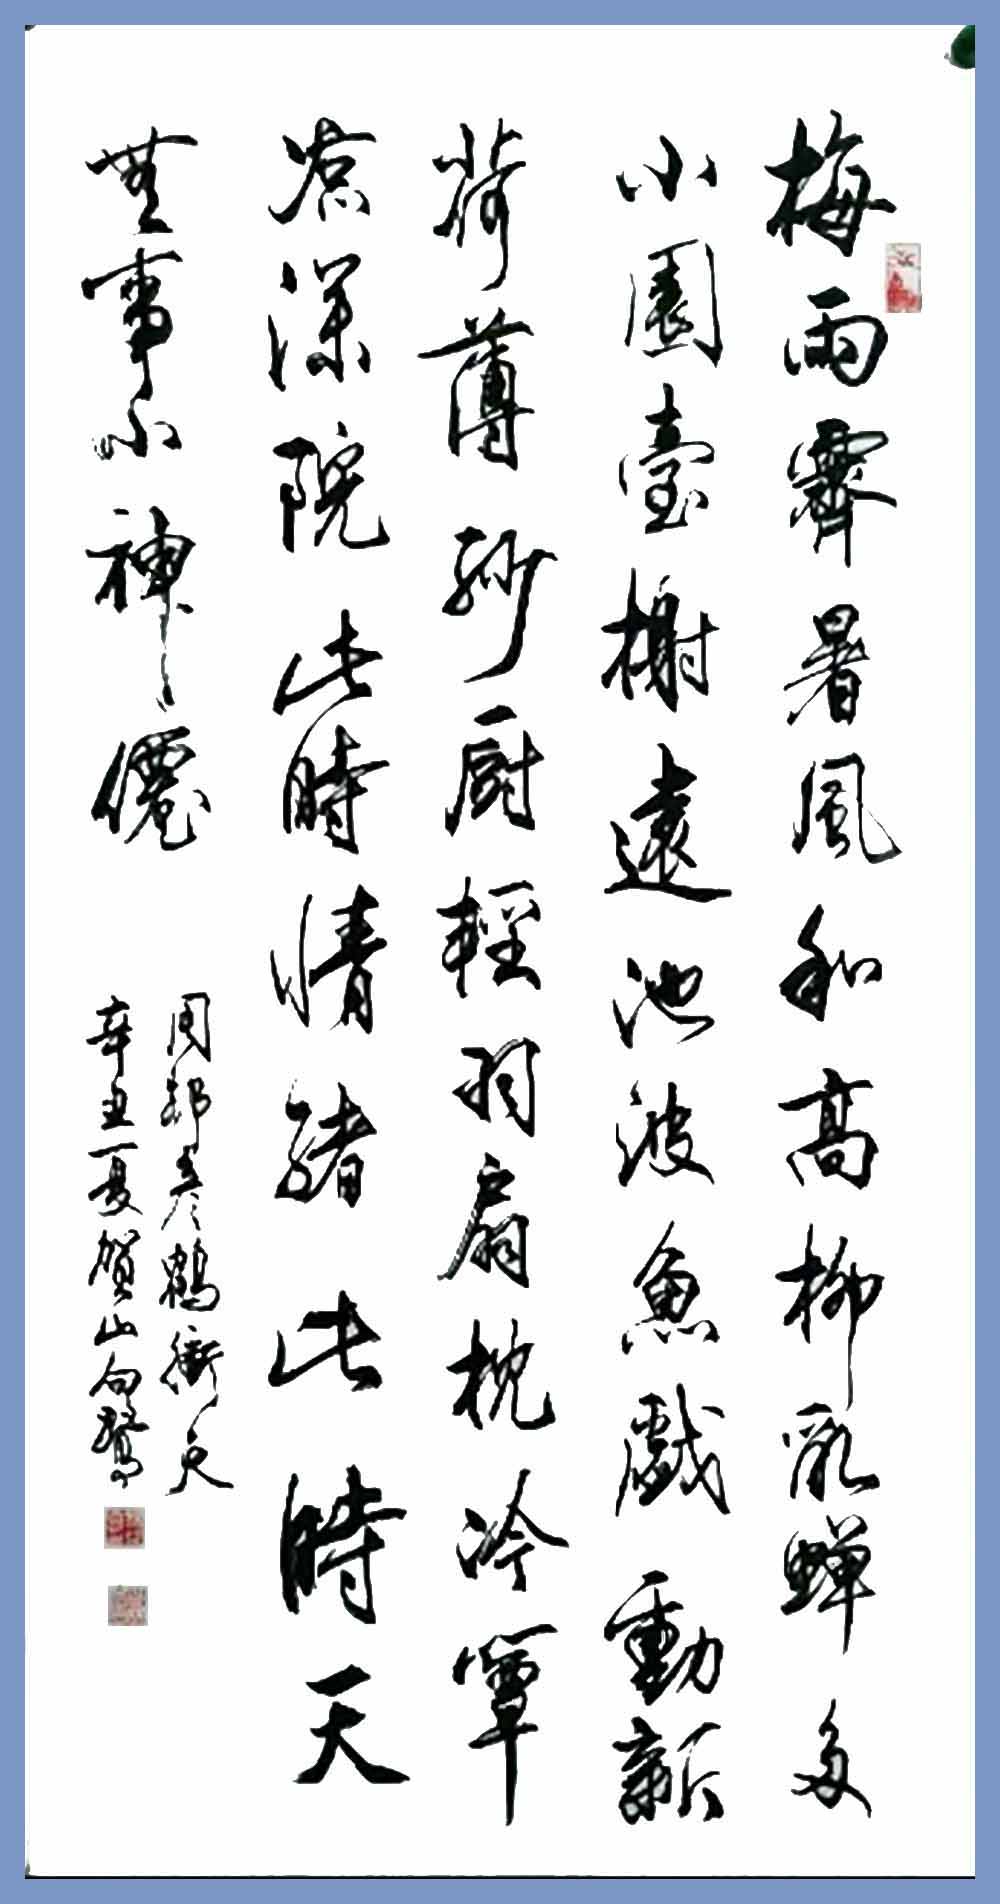 梅雨霽暑風和高柳乱蝉多
小園臺榭遠池波魚戲動新
荷薄紗厨輕羽扇枕冷簟
凉深院此時情緒此時天
無事小神僊
周邦彦鶴衝天
辛丑夏賀山向